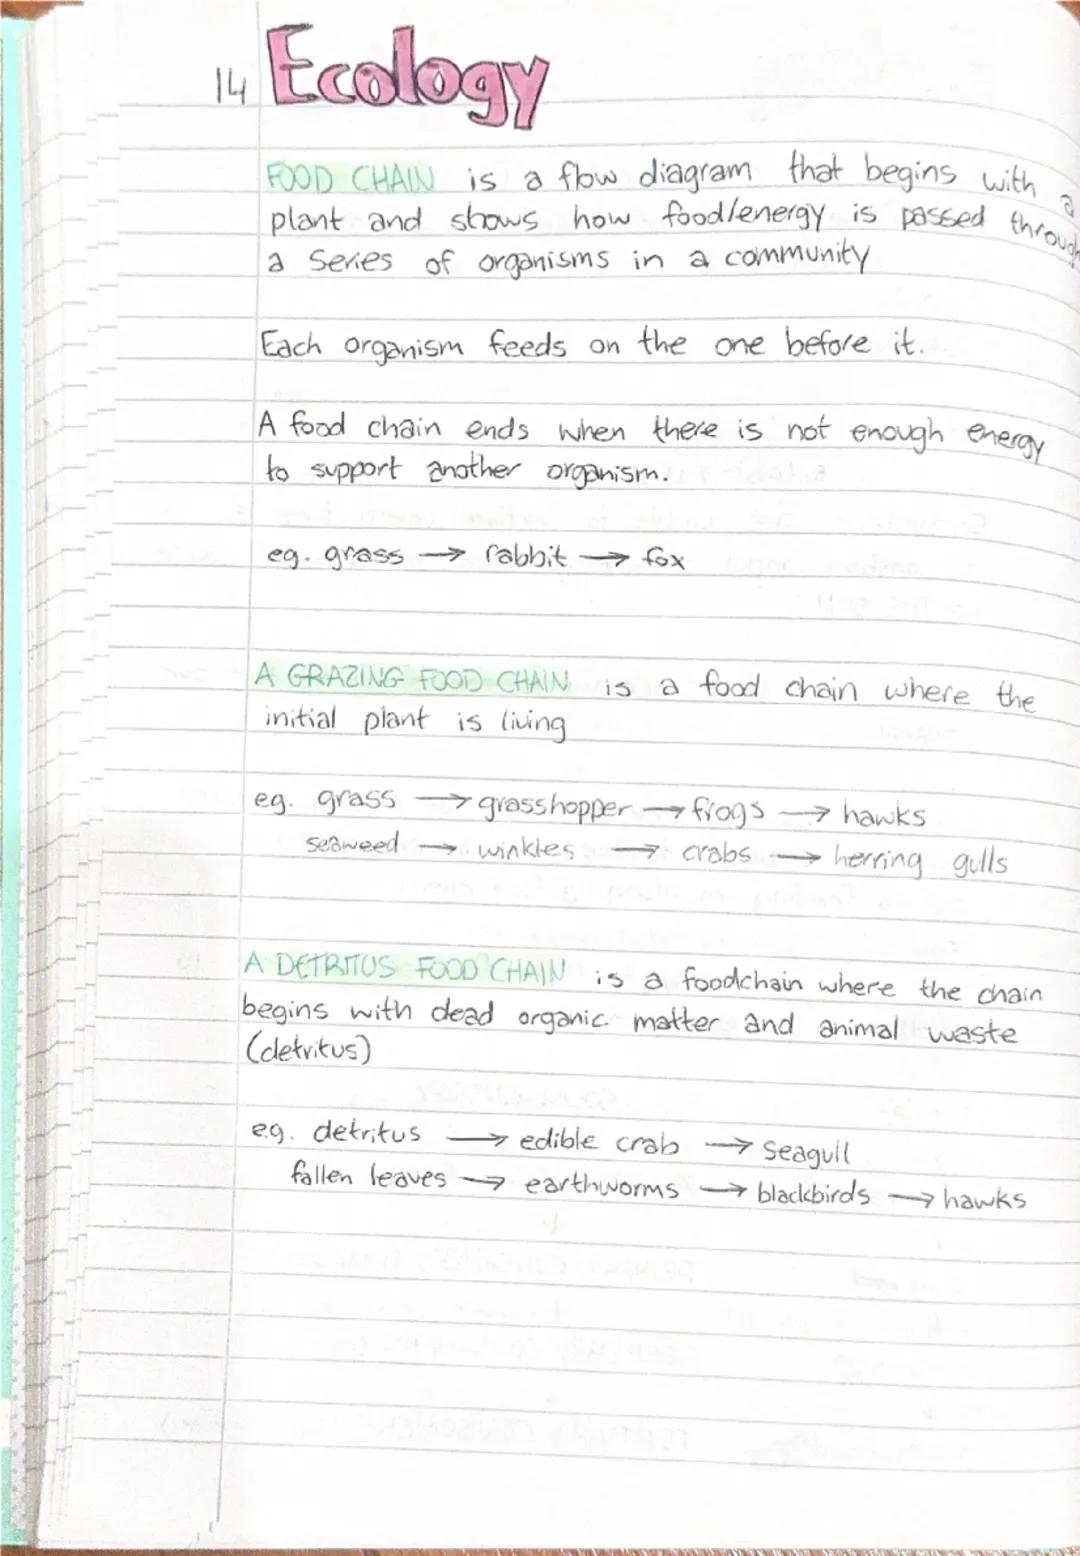 14 Ecology
FOOD CHAIN is a flow diagram that begins with a
plant and shows how food/energy is passed through
a series of organisms in a community
Each organism feeds on the one before it.
A food chain ends when there is not enough energy
to support another organism.
eg. grass → rabbit → fox
A GRAZING FOOD CHAIN is a food chain where the
initial plant is living
eg. grass → grasshopper → frogs → hawks
seaweed → winkles → crabs → herring gulls
A DETRITUS FOOD CHAIN is a foodchain where the chain
begins with dead organic matter and animal waste
(detritus)
eg. detritus → edible crab → seagull
fallen leaves → earthworms → blackbirds → hawks